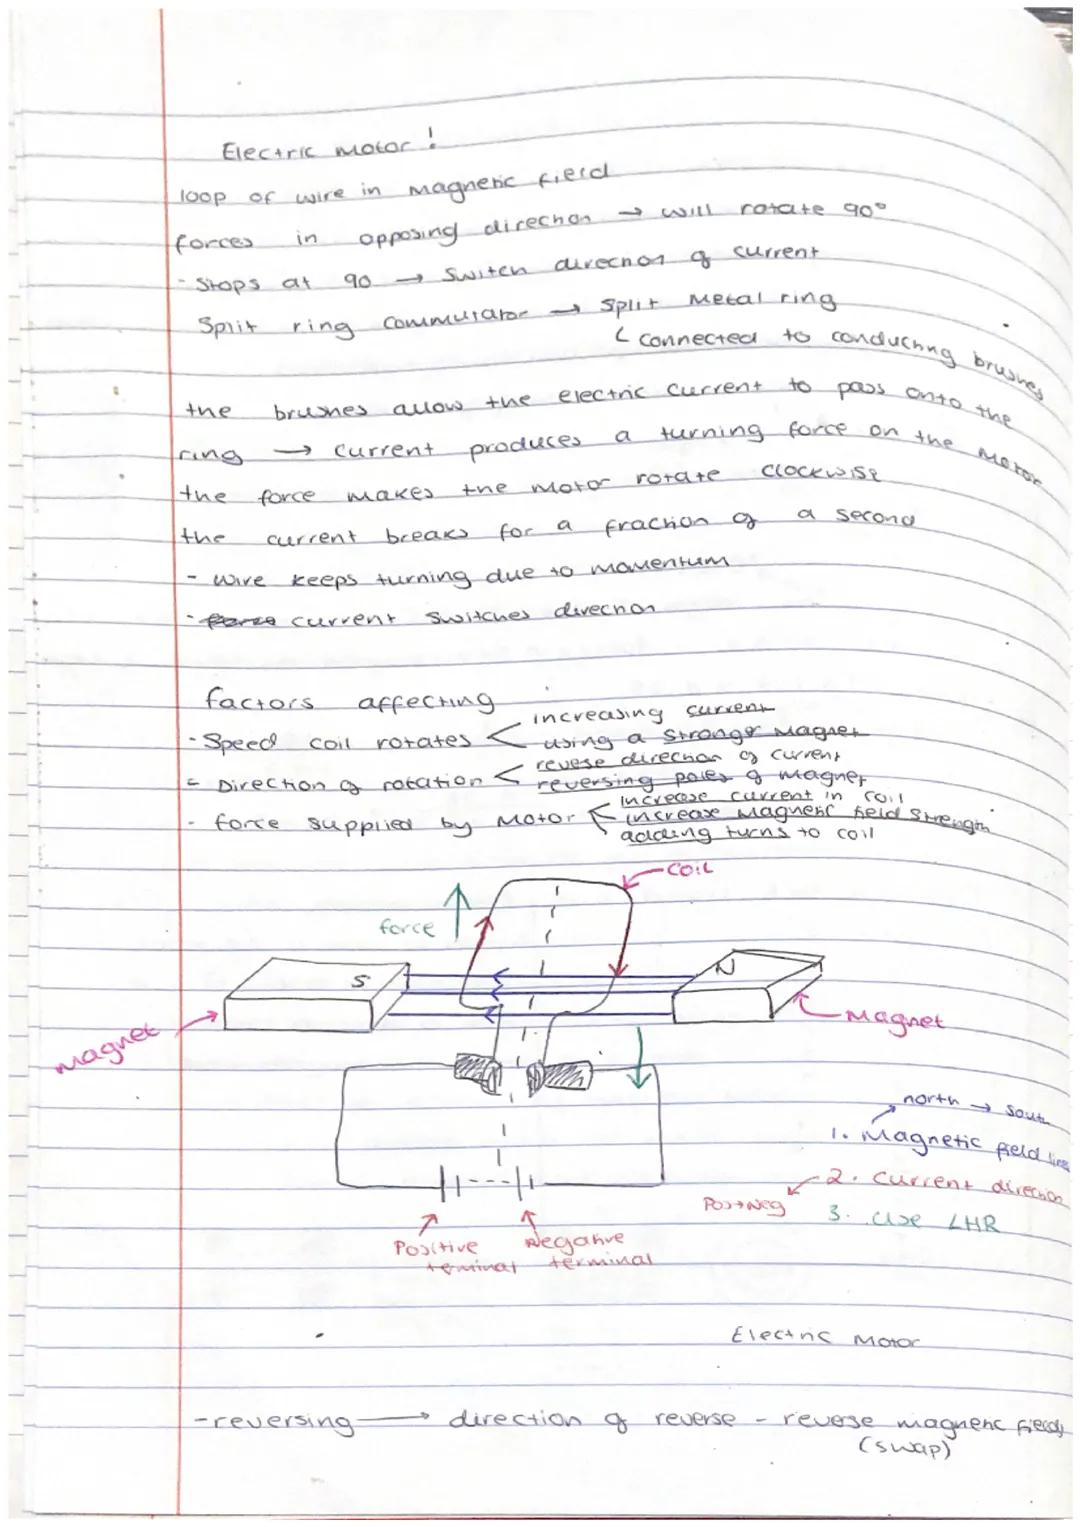 Electric motor!
loop of wire in magnetic field
forces in opposing direction → will rotate 90°
- Stops at 90 → Switch direction of current
Split ring commutator → Split Metal ring
↳ connected to conducting brushes
the brushes allow the electric current to pass onto the
ring → current produces a turning force on the Motor
the force makes the motor rotate clockwise
the current breaks for a fraction of a second
- wire keeps turning due to momentum
- force current switches direction
factors affecting
increasing current
- Speed coil rotates < using a stronger magnet
reverse direction of current
- Direction of rotation < reversing poles of magnet
increase current in coil
- force supplied by Motor < increase magnetic field strength
adding turns to coil
coil
force
S
N
magnet
Magnet
north → south
1. Magnetic field lines
2. Current direction
Pos→Neg
3. Use LHR
Positive terminal
Negative terminal
Electric Motor
- reversing → direction of reverse - reverse magnetic fields
(swap)